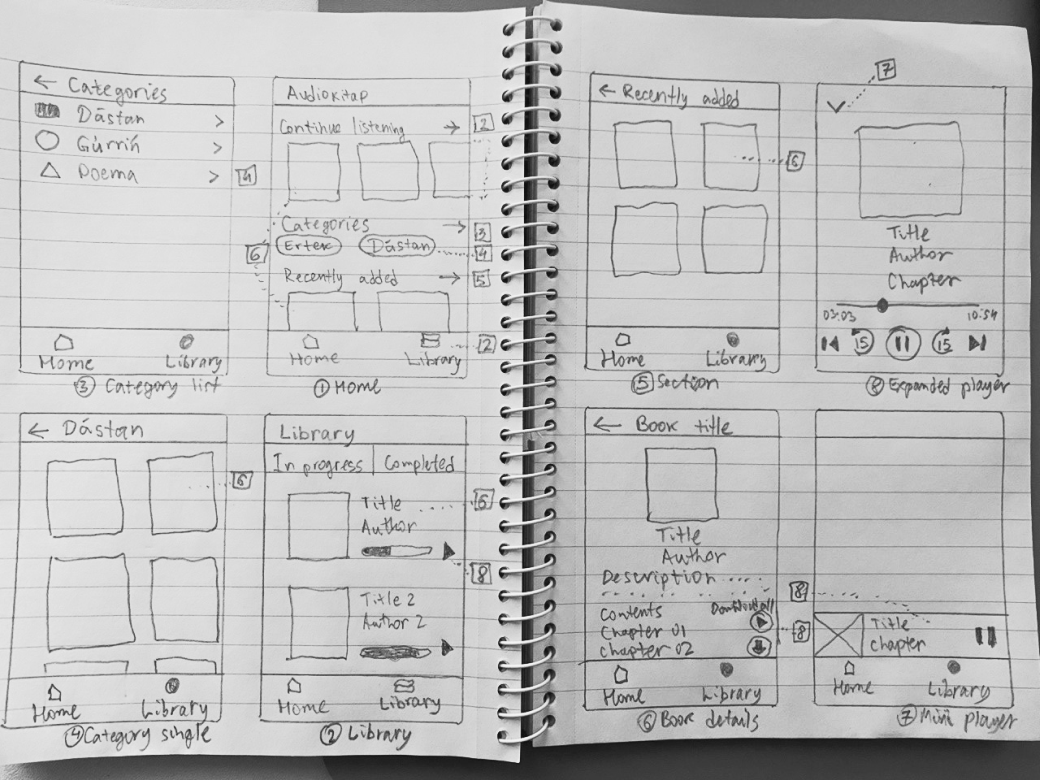 ← Categories
Dástan >
Gúrriń >
Poema >
4
Home Library
③ Category list
Audiokitap
Continue listening → 2
Categories → 3
Ertek Dástan 4
6
Recently added → 5
Home Library 2
① Home
← Dástan
6
Home Library
④ Category single
Library
In progress | Completed
Title 6
Author
8
Title 2
Author 2
Home Library
② Library
← Recently added
6
Home Library
⑤ Section
7
Title
Author
Chapter
03:03 10:54
15 15
⑧ Expanded player
← Book title
Title
Author
Description ....
Contents Download all
Chapter 01
Chapter 02 8
Home Library
⑥ Book details
8
Title
Chapter
Home Library
⑦ Mini player